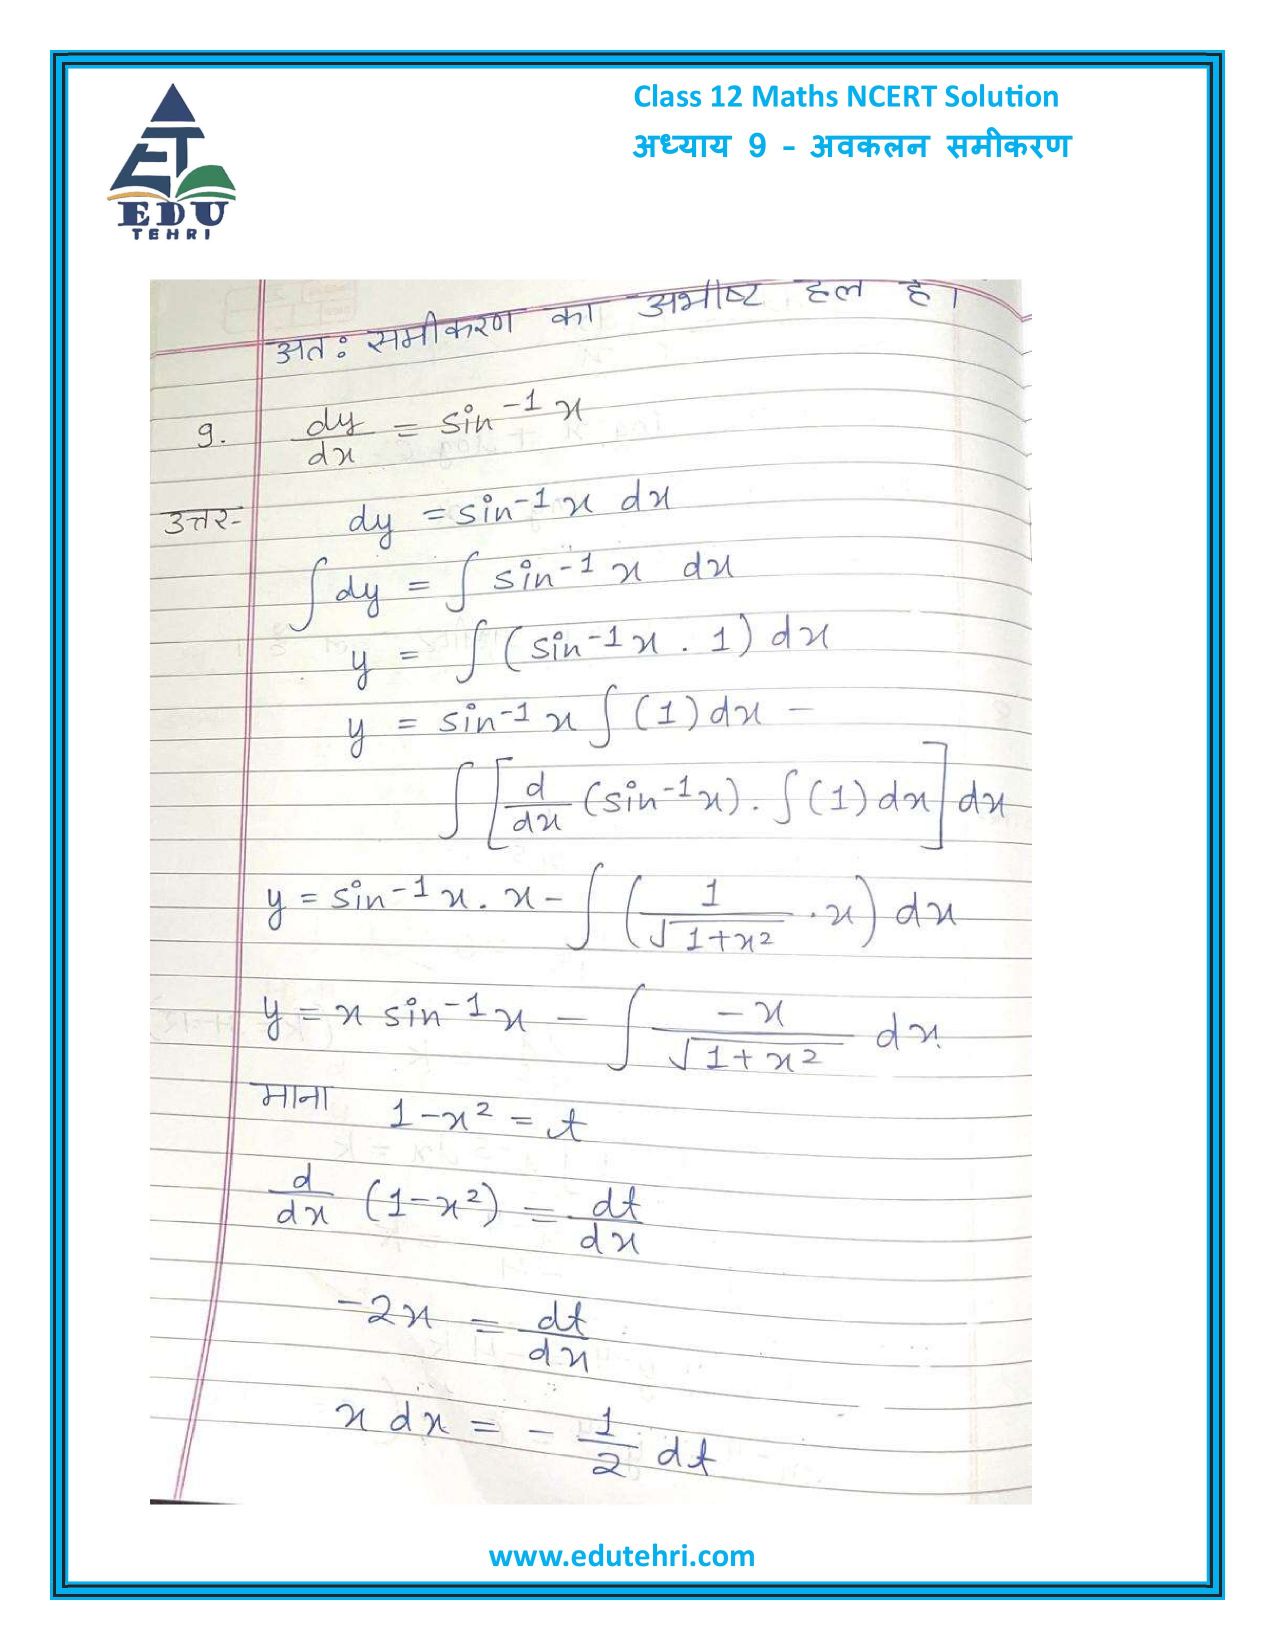 Class 12 Maths NCERT Solution
अध्याय 9 - अवकलन समीकरण
EDU
TEHRI
अतः समीकरण का अभीष्ट हल है।
9. dy/dx = sin⁻¹ x
उत्तर- dy = sin⁻¹ x dx
∫ dy = ∫ sin⁻¹ x dx
y = ∫ (sin⁻¹ x . 1) dx
y = sin⁻¹ x ∫ (1) dx –
∫ [d/dx (sin⁻¹ x) . ∫ (1) dx] dx
y = sin⁻¹ x . x – ∫ (1/√(1+x²) . x) dx
y = x sin⁻¹ x – ∫ -x/√(1+x²) dx.
माना 1-x² = t
d/dx (1-x²) = dt/dx
-2x = dt/dx
x dx = - 1/2 dt
www.edutehri.com